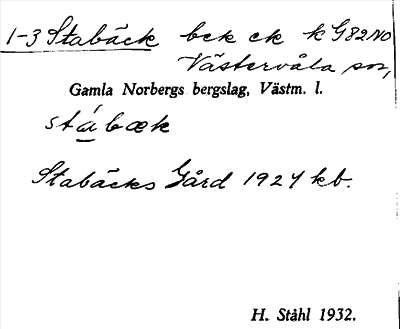 1-3 Stabäck bck ck k G82NO
Västervåla sn,
Gamla Norbergs bergslag, Västm. l.
stábæk
Stabäcks Gård 1924 kb.
H. Ståhl 1932.